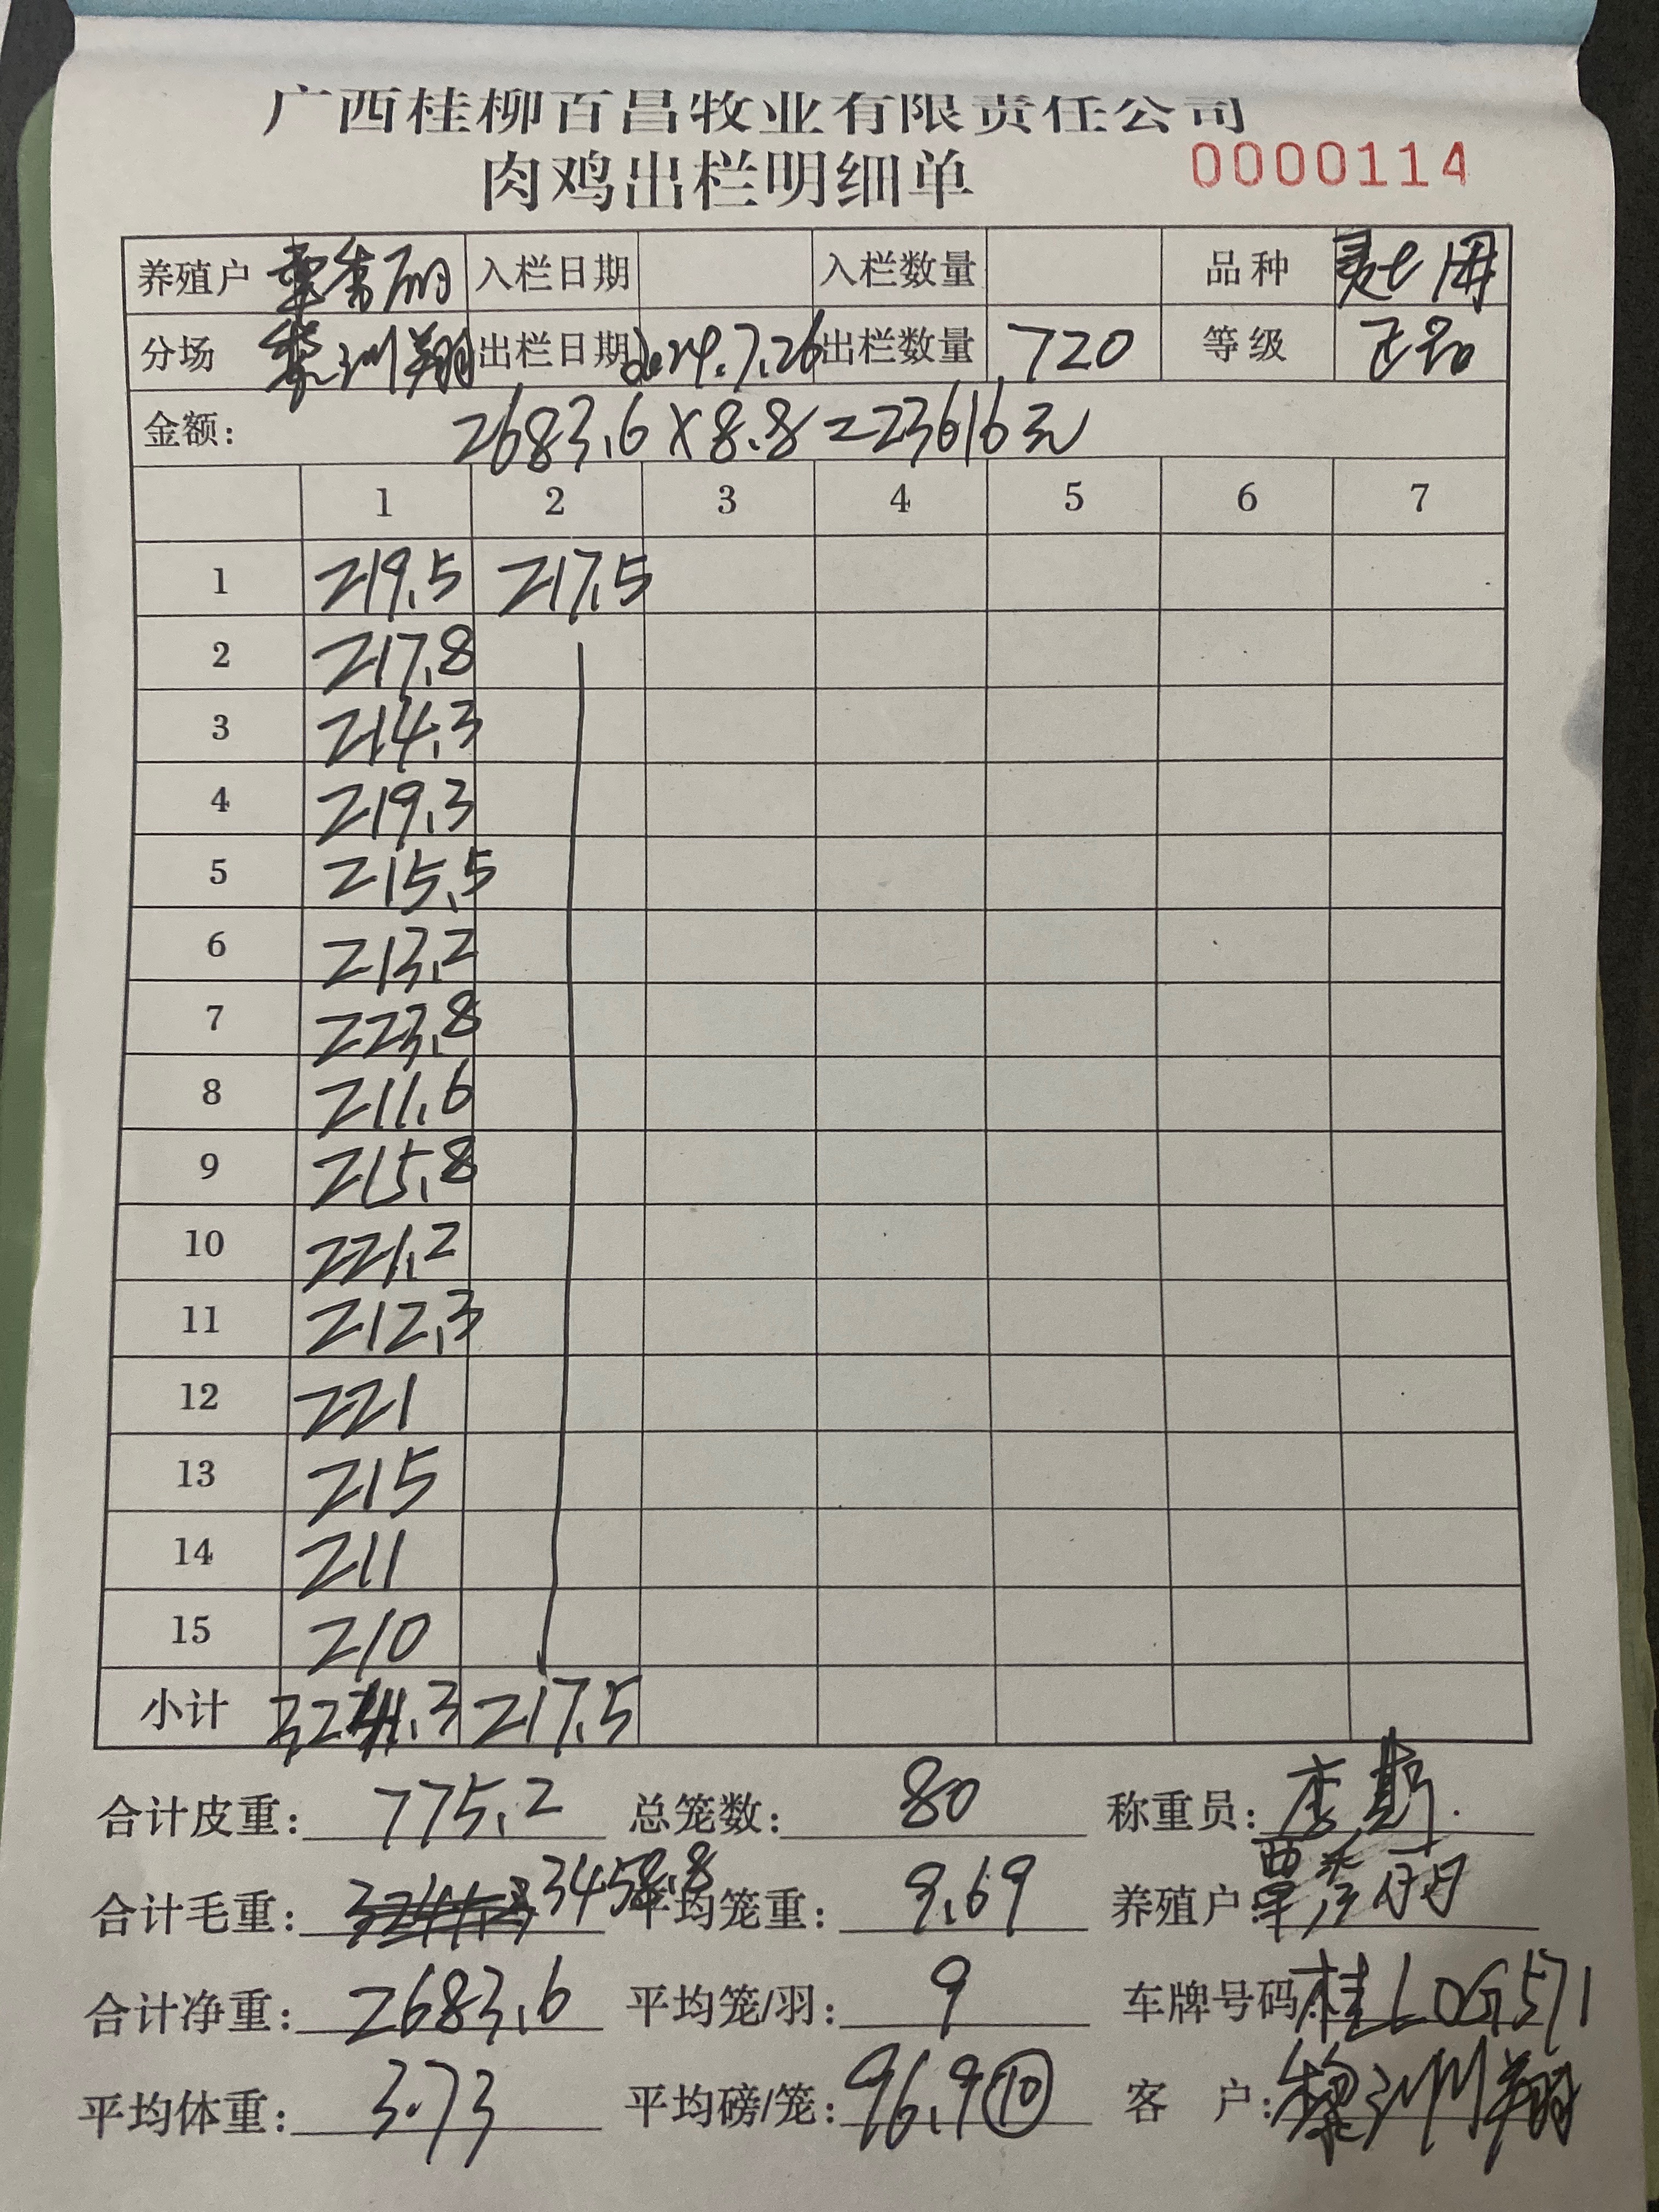 广西桂柳百昌牧业有限责任公司
肉鸡出栏明细单 0000114
养殖户 覃秀丽 入栏日期 入栏数量 品种
分场 黎洲翔 出栏日期 2024.7.26 出栏数量 720 等级 正品
金额: 2683.6×8.8=23616元
1 2 3 4 5 6 7
1 219.5 217.5
2 217.8
3 214.3
4 219.3
5 215.5
6 213.2
7 223.8
8 211.6
9 215.8
10 221.2
11 212.3
12 221
13 215
14 211
15 210
小计 3241.3 217.5
合计皮重: 775.2 总笼数: 80 称重员: 李
合计毛重: 3458.8 平均笼重: 9.69 养殖户 覃秀丽
合计净重: 2683.6 平均笼/羽: 9 车牌号码: 桂L0G571
平均体重: 3.73 平均磅/笼: 96.9 ⑩ 客 户: 黎洲翔